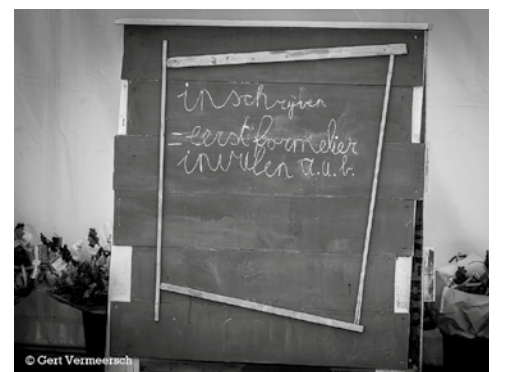 inschrijven
= eerst formelier
invulen a.u.b.
© Gert Vermeersch